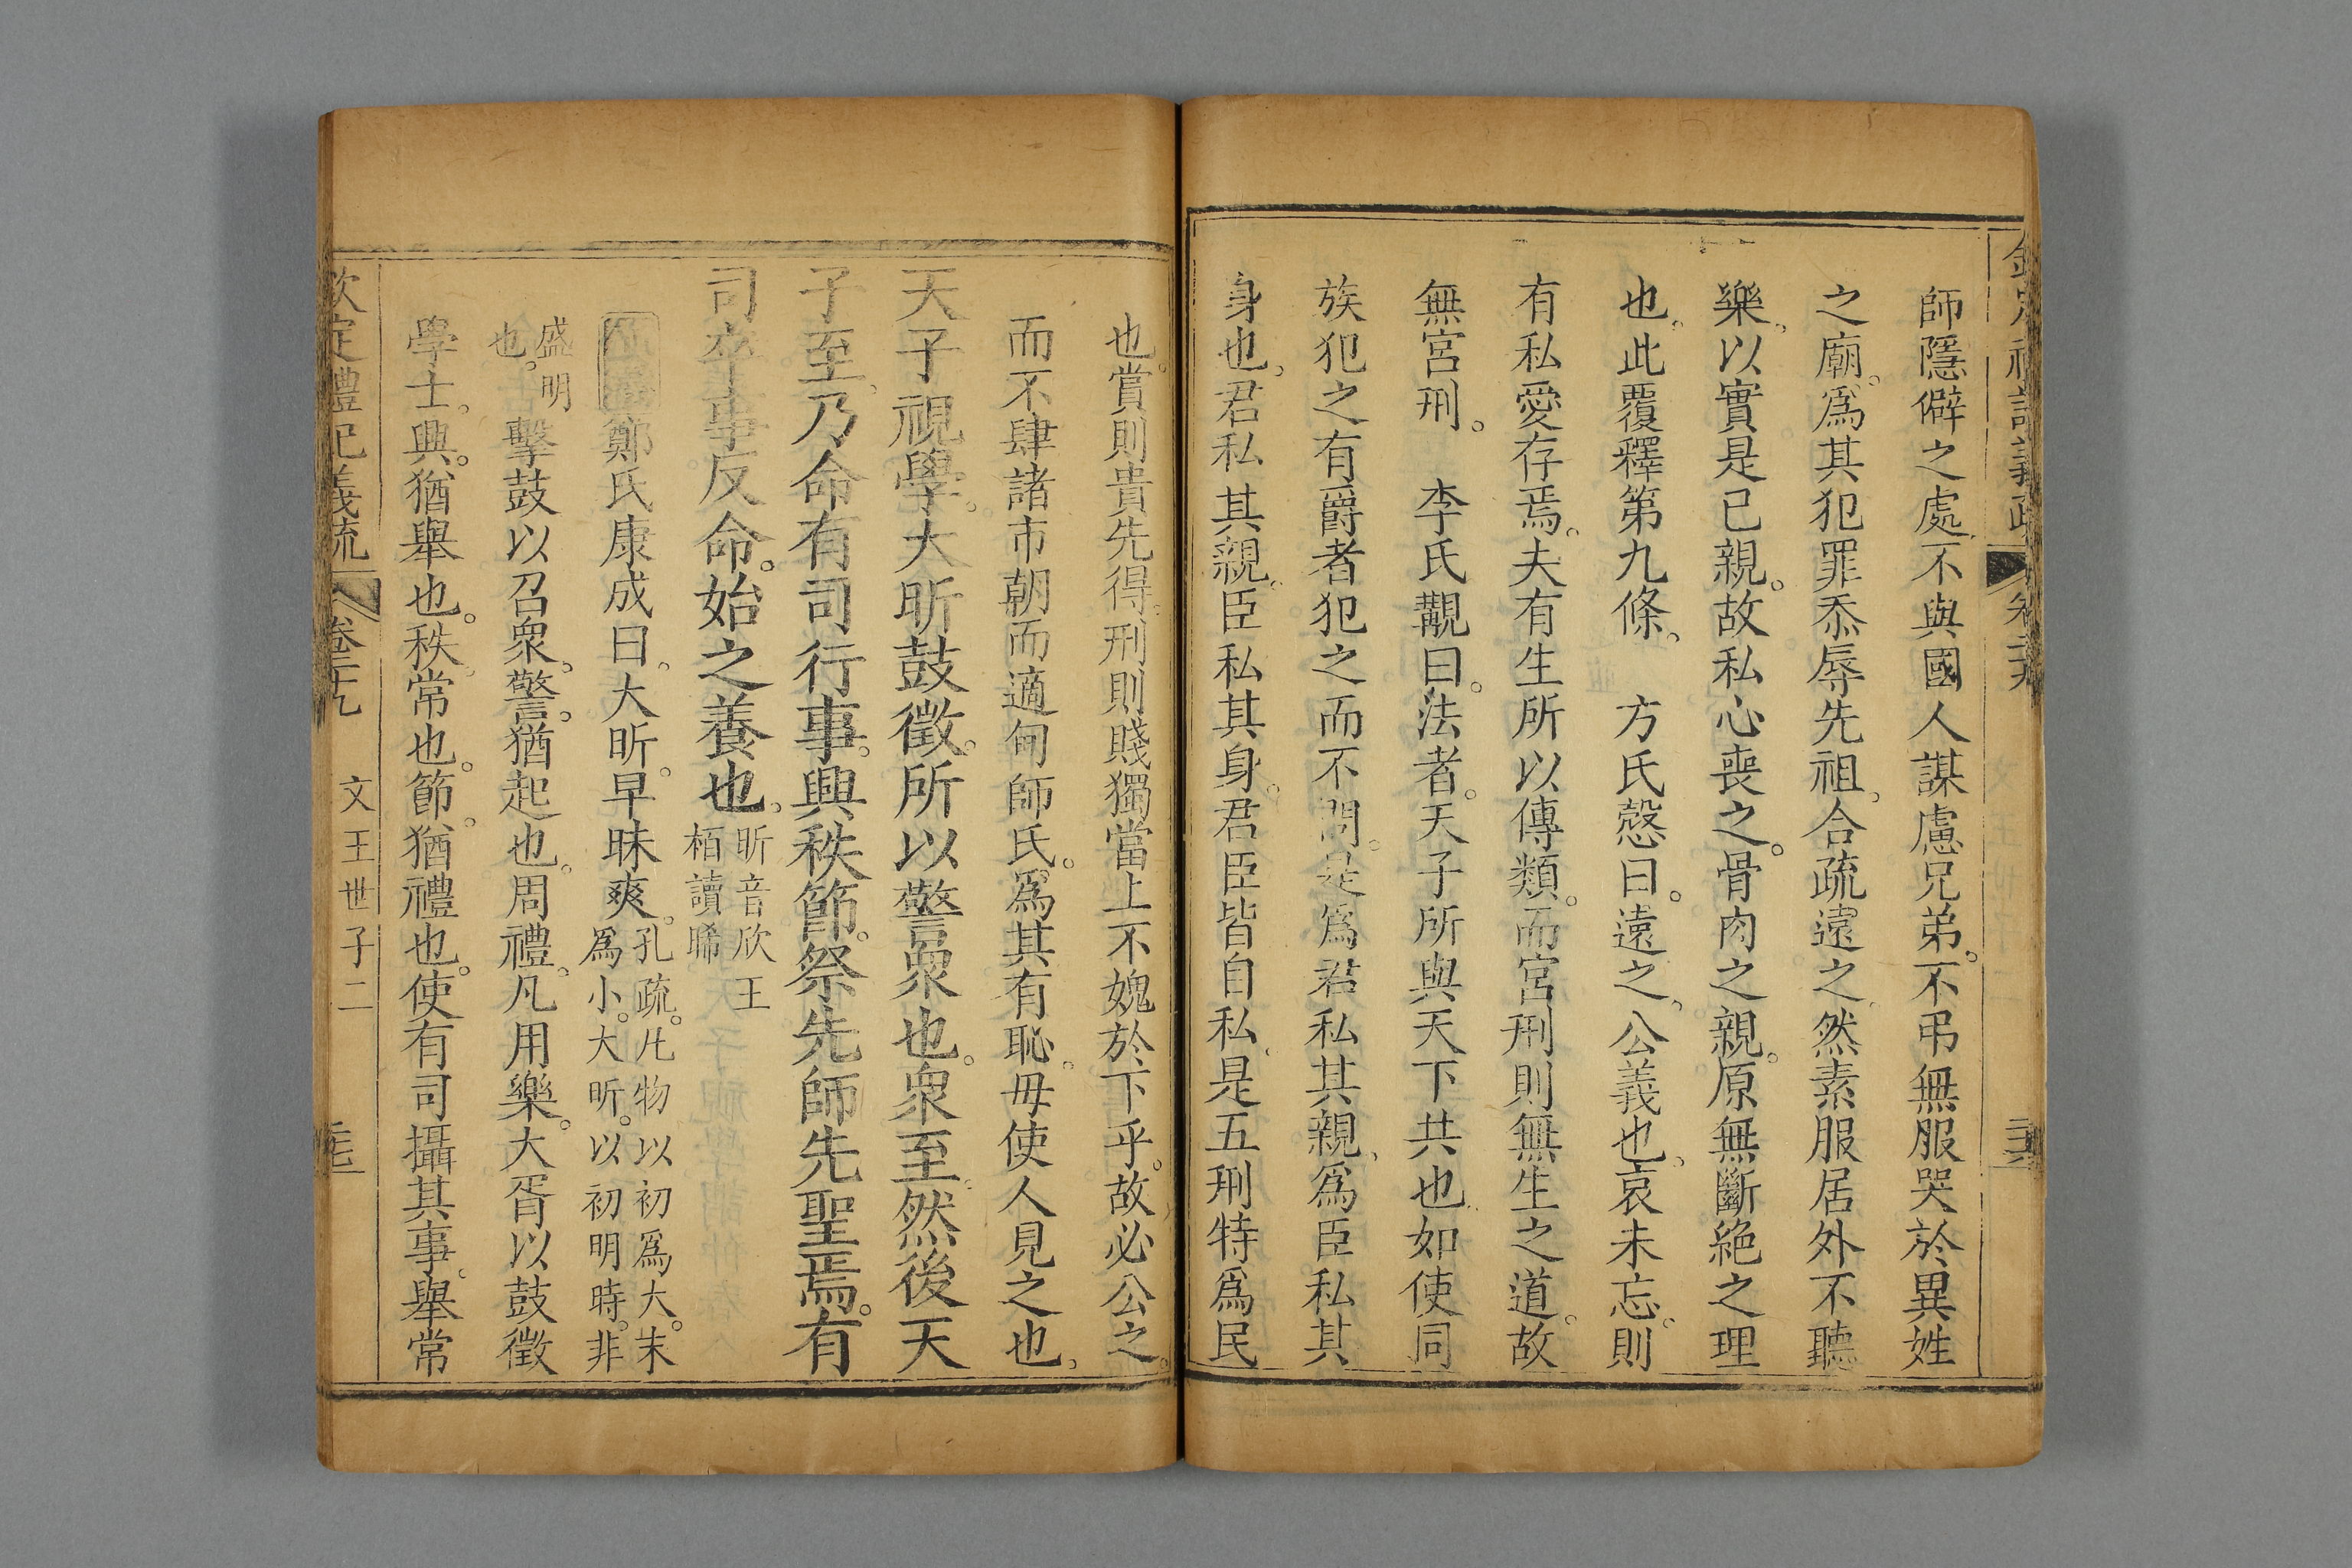 師隱僻之處不與國人謀慮兄弟。不弔無服哭於異姓
之廟。爲其犯罪忝辱先祖、合疏遠之、然素服居外不聽
樂、以實是已親。故私心喪之。骨肉之親。原無斷絶之理
也。此覆釋第九條、　方氏慤曰。遠之、公義也、哀未忘。則
有私愛存焉。夫有生所以傳類。而宮刑則無生之道。故
無宮刑。　李氏觀曰。法者。天子所與天下共也、如使同
族犯之有爵者犯之而不問。是爲君私其親、爲臣私其
身也、君私其親。臣私其身。君臣皆自私、是五刑特爲民
也。賞則貴先得。刑則賤獨當上不媿於下乎。故必公之。
而不肆諸市朝而適甸師氏。爲其有恥。毋使人見之也、
天子視學。大昕鼓徵。所以警衆也。衆至然後天
子至、乃命有司行事。興秩節。祭先師先聖焉。有
司卒事反命。始之養也、昕音欣王
栢讀晞
鄭氏康成曰。大昕。早昧爽。孔疏。凡物以初爲大。末
爲小。大昕。以初明時。非
盛明
也。擊鼓以召衆、警。猶起也。周禮。凡用樂。大胥以鼓徵
學士。興。猶舉也。秩、常也。節。猶禮也。使有司攝其事、舉常
欽定禮記義疏
卷二十九
文王世子二